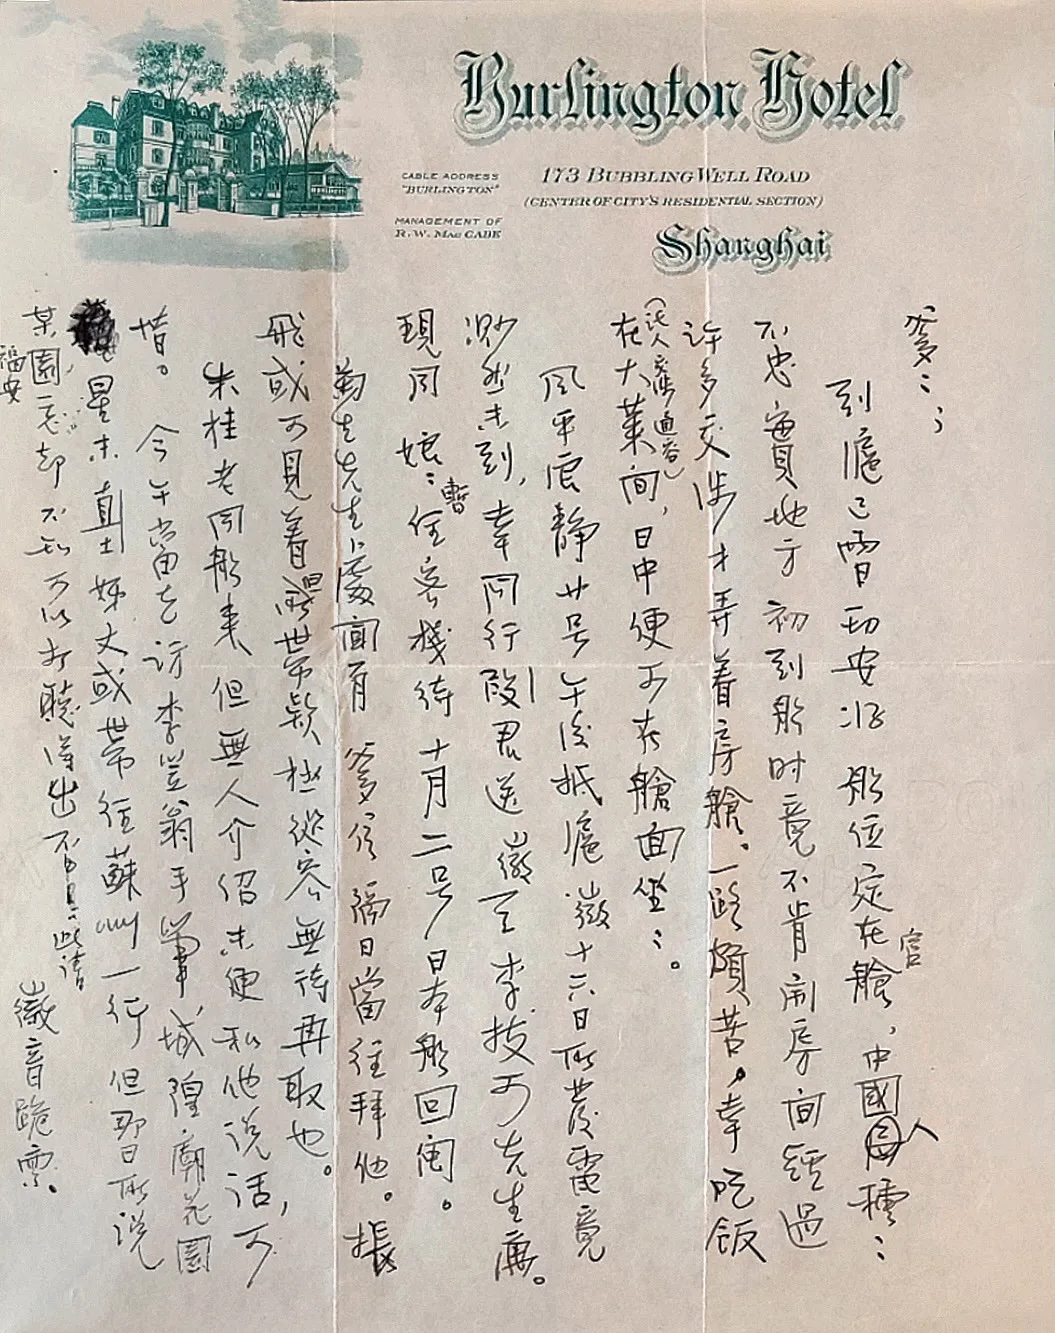 Burlington Hotel
CABLE ADDRESS
"BURLINGTON"
MANAGEMENT OF
R. W. MAC CABE
173 BUBBLING WELL ROAD
(CENTER OF CITY'S RESIDENTIAL SECTION)
Shanghai
爹爹：
到滬已電
船位定在官艙，中國人種種
不忠實地方初到船时竟不肯開房间經過
許多交涉才弄着房艙。一路頗苦。幸吃飯
在大菜间，日中便可在艙面坐坐。
風平浪静廿号午後抵滬徽十六日所發電竟
渺然未到，幸同行段君送徽至李拔可先生寓。
現同娘娘暫住客棧待十月二号日本船回闽。
菊生先生處聞有爹信隔日當往拜他。振
飛或可見着但世帶款極從容無待再取也。
朱桂老同船来但無人介绍未便私他说话，可
惜。今午當去访李笠翁手筆，城隍廟花園
星未直士姊丈或帶往蘇州一行但那日所说
某園，忘却不知可以打聽得出否此請
福安
徽音跪禀。